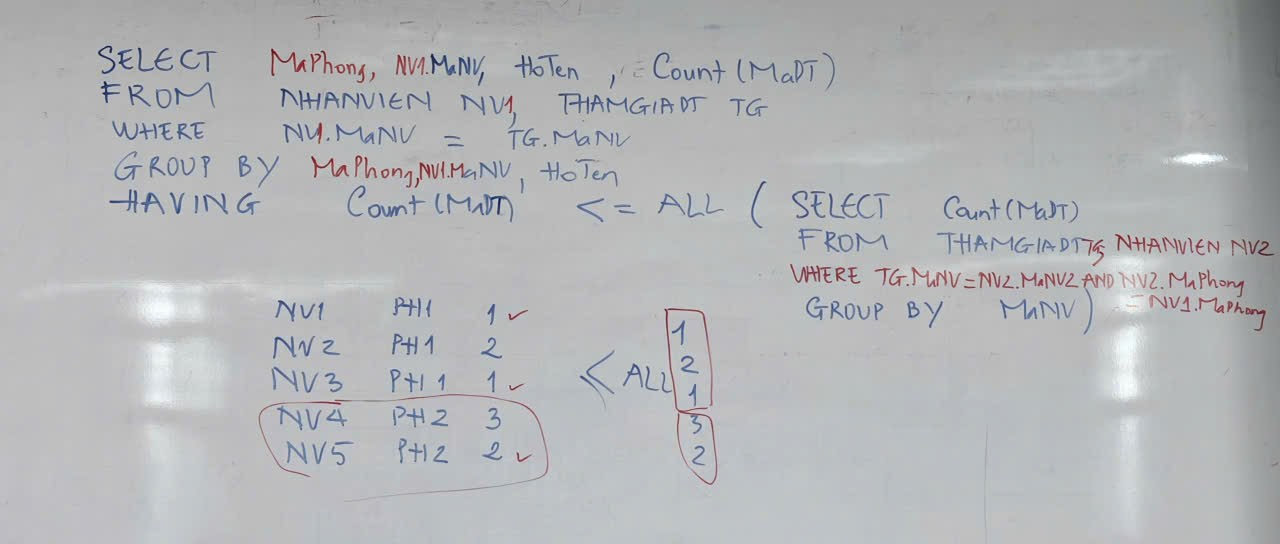 SELECT MaPhong, NV1.MaNV, HoTen, Count(MaDT)
FROM NHANVIEN NV1, THAMGIADT TG
WHERE NV1.MaNV = TG.MaNV
GROUP BY MaPhong, NV1.MaNV, HoTen
HAVING Count(MaDT) <= ALL ( SELECT Count(MaDT)
FROM THAMGIADT TG, NHANVIEN NV2
WHERE TG.MaNV = NV2.MaNV2 AND NV2.MaPhong
= NV1.MaPhong
GROUP BY MaNV)
NV1 PH1 1 ✓ 1
NV2 PH1 2 2
NV3 PH1 1 ✓ < ALL 1
NV4 PH2 3 3
NV5 PH2 2 ✓ 2